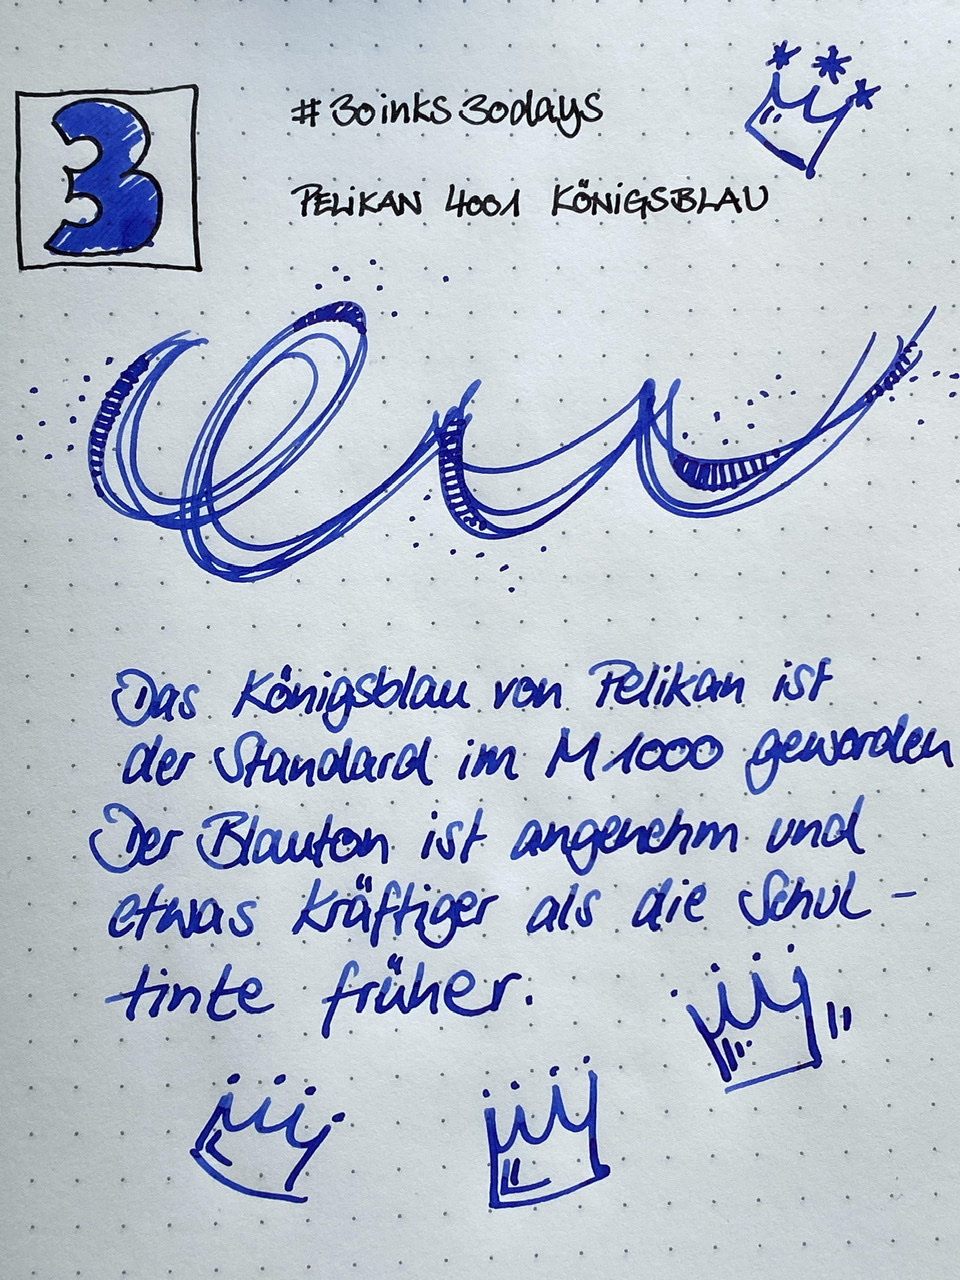 3
#30inks30days
PELIKAN 4001 KÖNIGSBLAU
Das Königsblau von Pelikan ist
der Standard im M1000 geworden
Der Blauton ist angenehm und
etwas kräftiger als die Schul-
tinte früher.